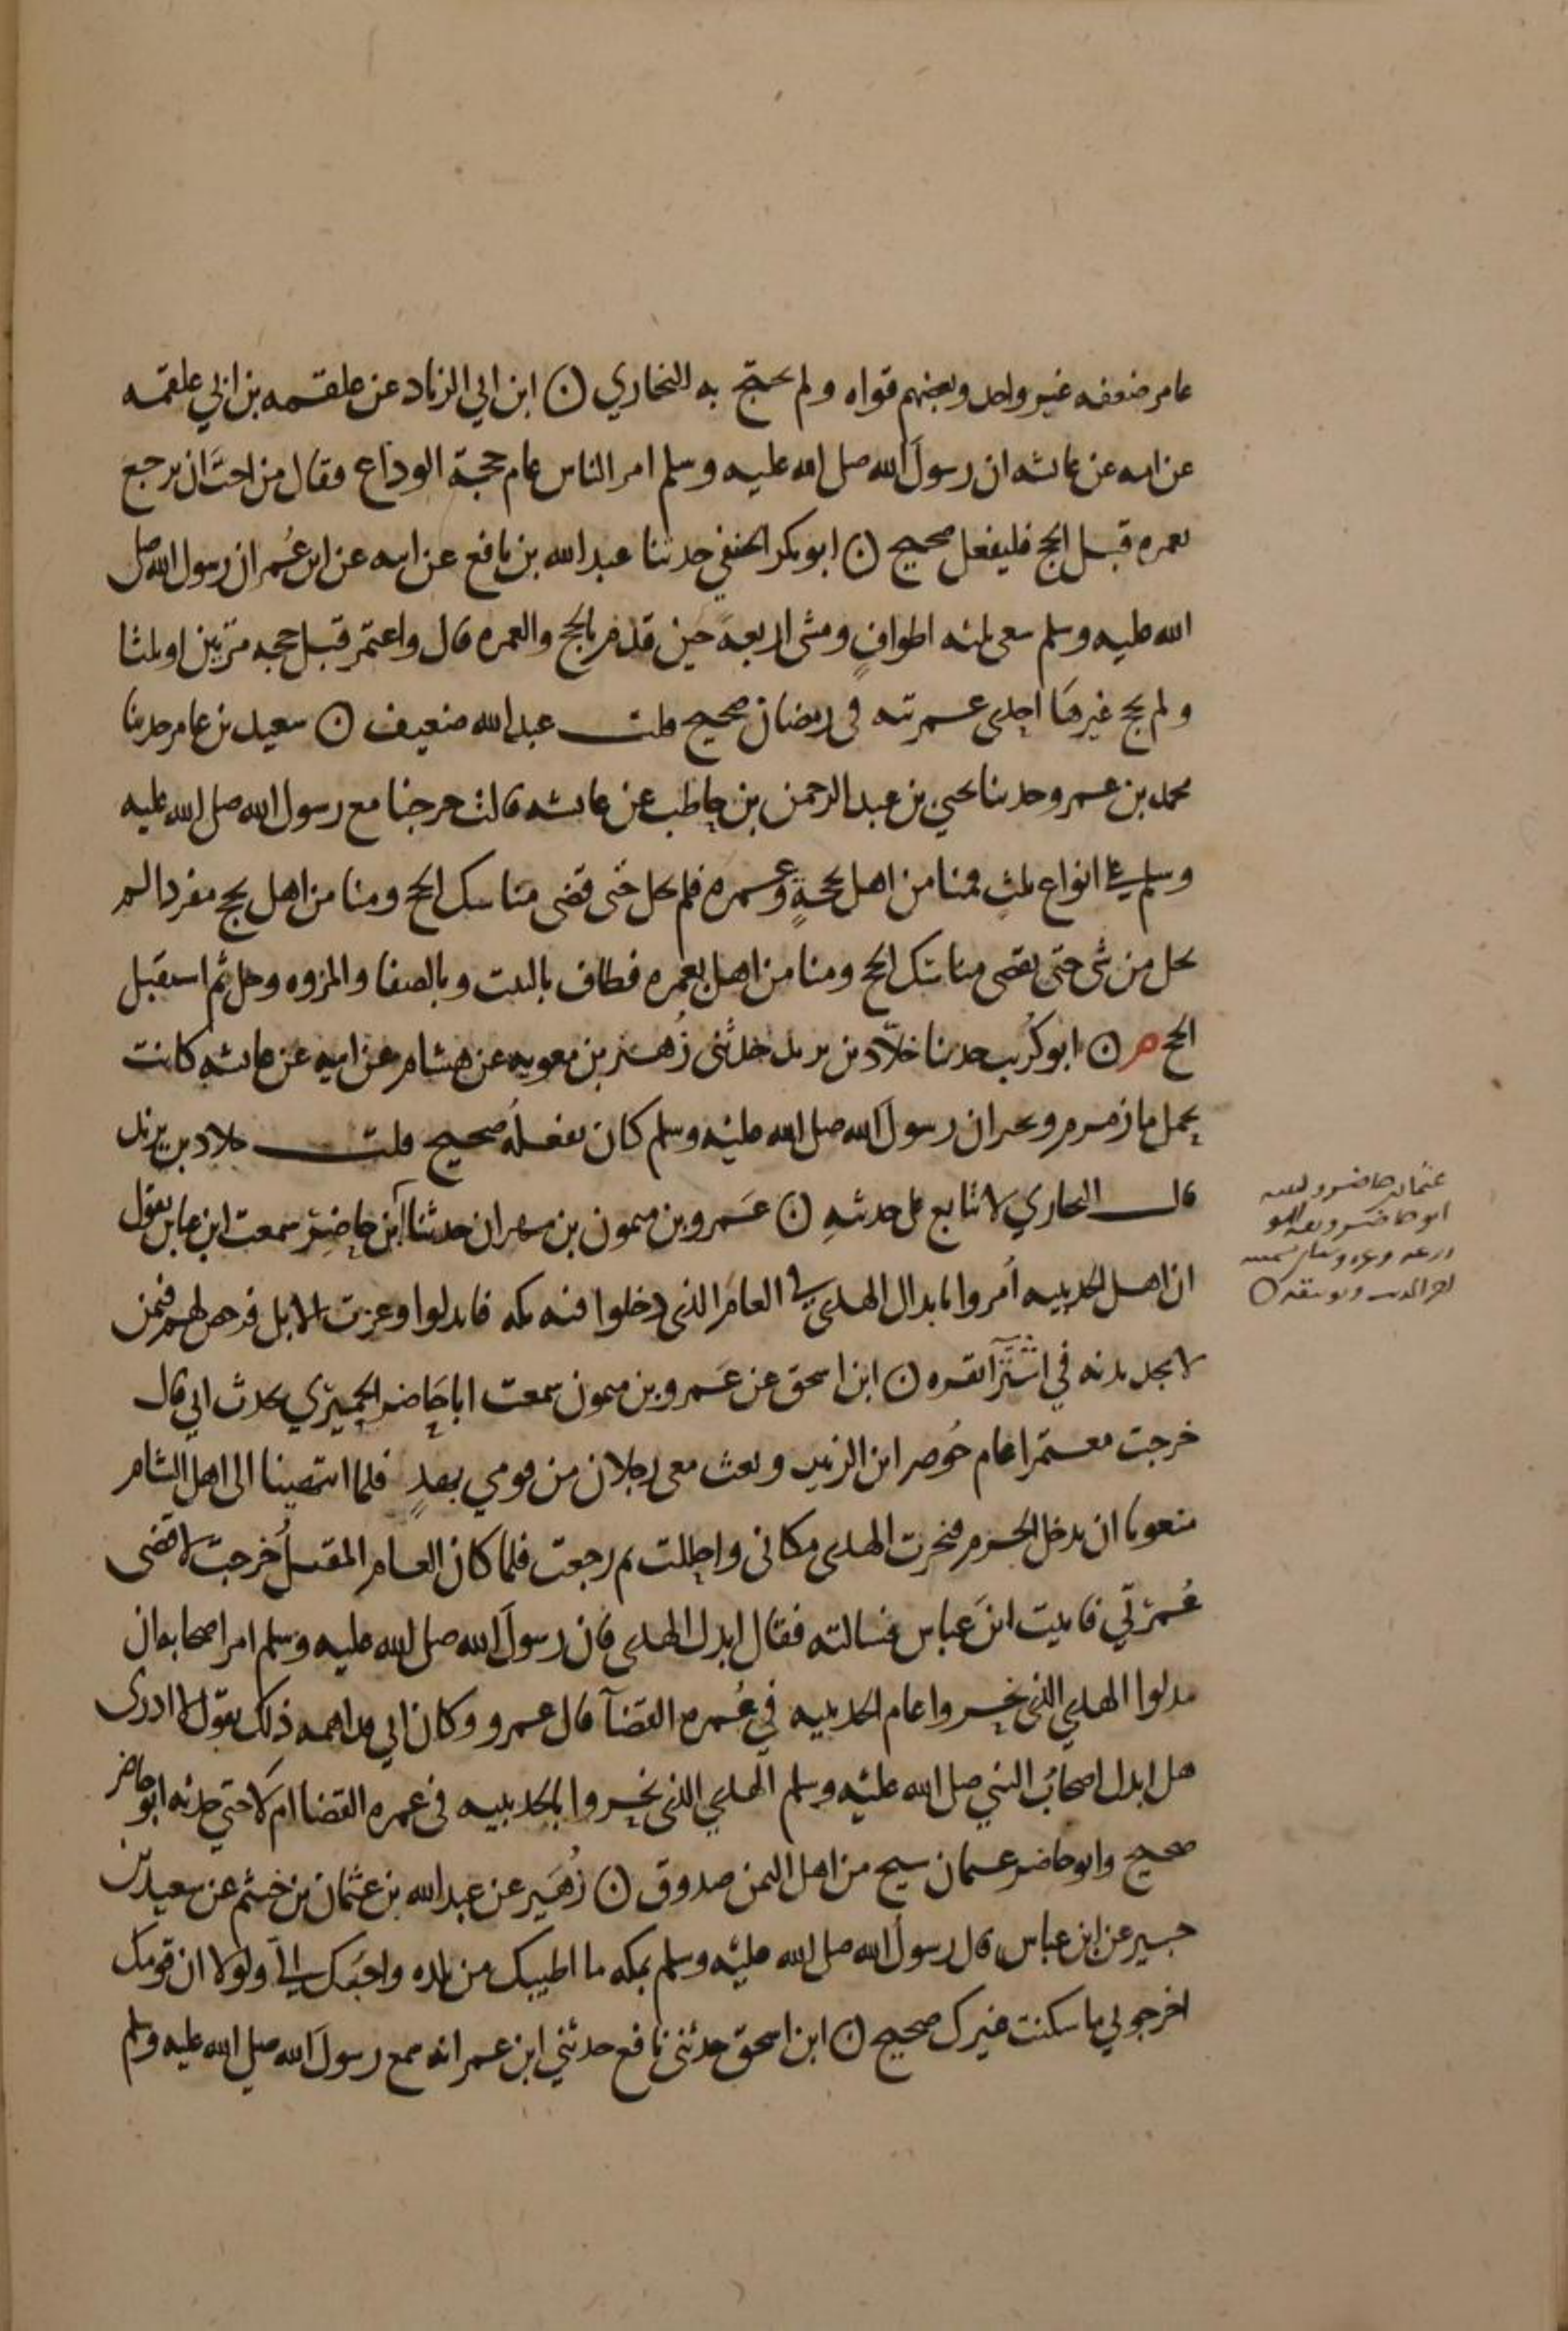 عامر ضعفه غير واحد وبعضهم قواه ولم يحتج به البخاري ن ابن ابي الزناد عن علقمه بن ابي علقمه
عن امه عن عائشه ان رسول الله صلى الله عليه وسلم امر الناس عام حجة الوداع فقال من احب ان يرجع
بعمره قبل الحج فليفعل صحيح ن ابو بكر الحنفي حدثنا عبد الله بن نافع عن ابيه عن ابن عمر ان رسول الله صلى
الله عليه وسلم سعى ثلثه اطواف ومشى اربعة حين قدم بالحج والعمره قال واعتمر قبل حجه مرتين او ثلثا
ولم يحج غيرها احدى عمرته في رمضان صحيح قلت عبد الله ضعيف ن سعيد بن عامر حدثنا
محمد بن عمرو حدثنا يحيى بن عبد الرحمن بن حاطب عن عائشه قالت خرجنا مع رسول الله صلى الله عليه
وسلم على انواع ثلث فمنا من اهل بحجة وعمره فلم يحل حتى قضى مناسك الحج ومنا من اهل بحج مفردا لم
يحل من شي حتى يقضي مناسك الحج ومنا من اهل بعمره فطاف بالبيت وبالصفا والمروه وحل ثم استقبل
الحج م ن ابو كريب حدثنا خلاد بن يزيد حدثني زهير بن معويه عن هشام عن ابيه عن عائشه كانت
تحمل ما زمزم وتخبر ان رسول الله صلى الله عليه وسلم كان يفعله صحيح قلت خلاد بن يزيد
قال البخاري لا يتابع على حديثه ن عمرو بن ميمون بن مهران حدثنا ابن حاضر سمعت ابن عباس يقول
ان اهل الحديبيه امروا بابدال الهدي في العام الذي دخلوا فيه مكه فابدلوا وعزت الابل فرخص لهم فيمن
لا يجد بدنه في اشترا بقره ن ابن اسحق عن عمرو بن ميمون سمعت ابا حاضر الحميري يحدث ابي قال
خرجت معتمرا عام حوصر ابن الزبير وبعث معي رجلان من قومي بهدي فلما انتهينا الى اهل الشام
منعونا ان ندخل الحرم فنحرت الهدى مكاني واحللت ثم رجعت فلما كان العام المقبل خرجت لاقضي
عمرتي فاتيت ابن عباس فسالته فقال ابدل الهدى فان رسول الله صلى الله عليه وسلم امر اصحابه ان
يبدلوا الهدي الذي نحروا عام الحديبيه في عمره القضآ قال عمرو وكان ابي قد اهمه ذلك يقول لا ادري
هل ابدل اصحاب النبي صلى الله عليه وسلم الهدي الذي نحروا بالحديبيه في عمره القضا ام لا حتى حدثه ابو حاضر
صحيح وابو حاضر عثمان شيخ من اهل اليمن صدوق ن زهير عن عبد الله بن عثمان بن خثيم عن سعيد بن
جبير عن ابن عباس قال رسول الله صلى الله عليه وسلم بمكه ما اطيبك من بلده واحبك الي ولولا ان قومك
اخرجوني ما سكنت غيرك صحيح ن ابن اسحق حدثني نافع حدثني ابن عمر انه سمع رسول الله صلى الله عليه وسلم
عثمان حاضر
ابو حاضر